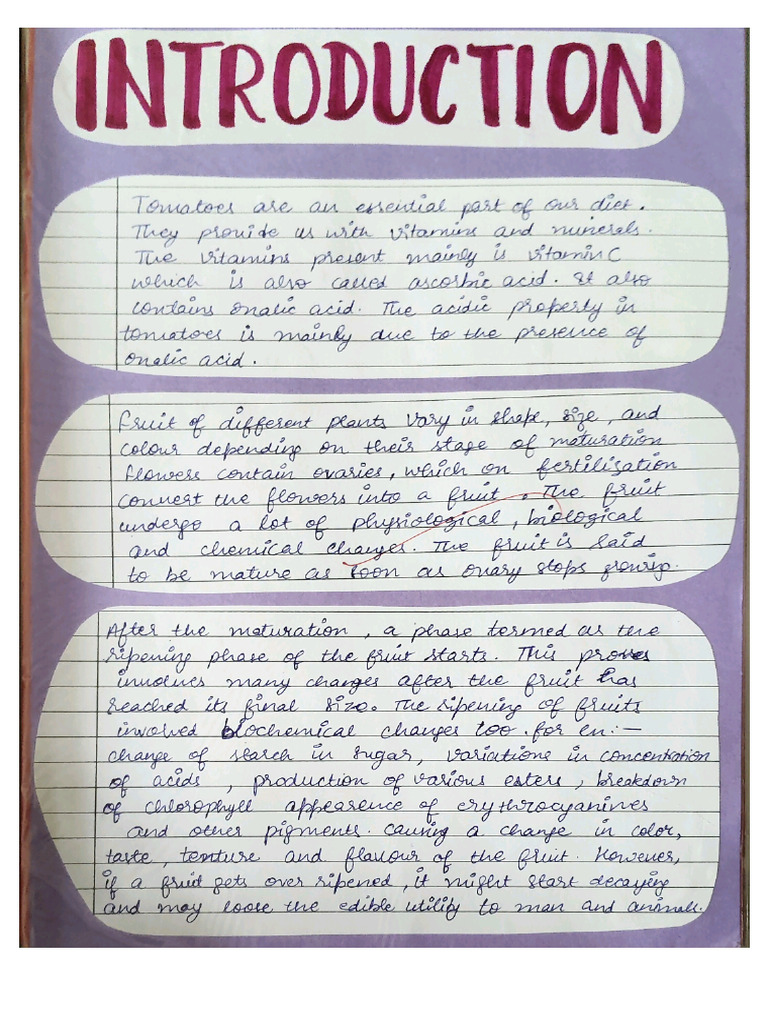 INTRODUCTION
Tomatoes are an essential part of our diet.
They provide us with vitamins and minerals.
The vitamins present mainly is vitamin C
which is also called ascorbic acid. It also
contains oxalic acid. The acidic property in
tomatoes is mainly due to the presence of
oxalic acid.
Fruit of different plants vary in shape, size, and
colour depending on their stage of maturation
flowers contain ovaries, which on fertilization
convert the flowers into a fruit. The fruit
undergo a lot of physiological, biological
and chemical changes. The fruit is said
to be mature as soon as ovary stops growing.
After the maturation, a phase termed as the
ripening phase of the fruit starts. This process
involves many changes after the fruit has
reached its final size. The ripening of fruits
involved biochemical changes too. for ex:-
change of starch in sugar, variations in concentration
of acids, production of various esters, breakdown
of chlorophyll appearence of erythrocyanines
and other pigments. causing a change in color,
taste, texture and flavour of the fruit. However,
if a fruit gets over ripened, it might start decaying
and may loose the edible utility to man and animals.